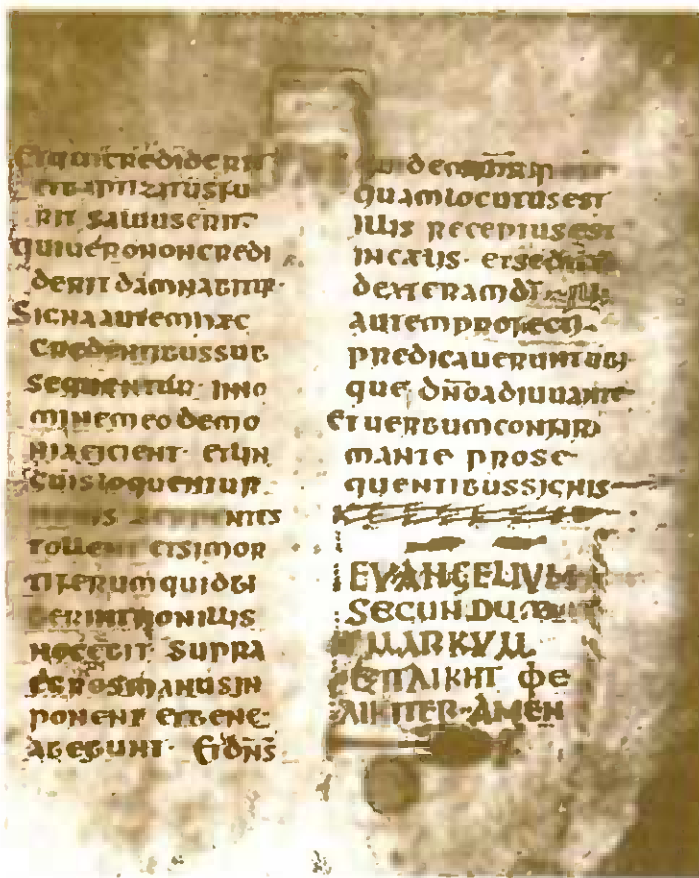 Et qui crediderit
et baptizatus fu
rit saluus erit
qui uero non credi
derit damnabitur·
Signa autem haec
credentibus sub
sequentur· in no
mine meo demo
nia eicient· et lin
guis loquentur
tollent et si mor
tiferum quid bi
berint non illis
nocebit· supra
egros manus in
ponent et bene
abebunt· Et dn̄s
quidem
quam locutus est
illis receptus est
in caelis· et sedit
dexteram dī·
autem profecti
predicauerunt ubi
que dn̄o adiuuante
et uerbum confir
mante prose
quentibus signis
EVANGELIVM
SECUNDUM
MARKVM
ΕΠΛΙΚΗΤ ΦΕ
ΛΙΚΙΤΕΡ·AMEN